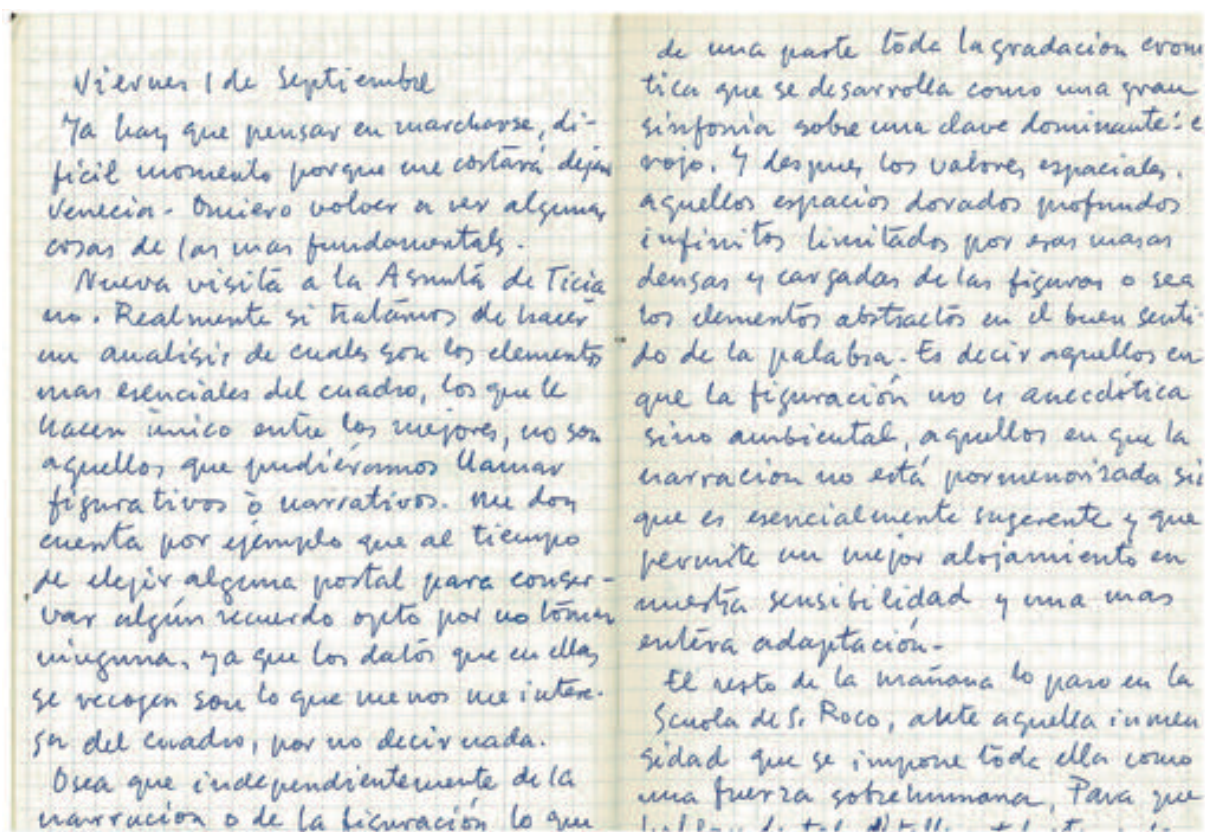 Viernes 1 de Septiembre
Ya hay que pensar en marcharse, di-
ficil momento porque me costará dejar
Venecia. Quiero volver a ver algunas
cosas de las mas fundamentales.
Nueva visita a la Asunta de Ticia
no. Realmente si tratámos de hacer
un analisis de cuales son los elementos
mas esenciales del cuadro, los que le
hacen único entre los mejores, no son
aquellos que pudiéramos llamar
figurativos ò narrativos. Me doy
cuenta por ejemplo que al tiempo
de elejir alguna postal para conser-
var algún recuerdo opto por no tomar
ninguna, ya que los datos que en ellas
se recogen son lo que menos me intere-
sa del cuadro, por no decir nada.
Osea que independientemente de la
narración o de la figuración lo que
de una parte toda la gradacion crom
tica que se desarrolla como una gran
sinfonia sobre una clave dominante: e
rojo. Y despues los valores espaciales.
aquellos espacios dorados profundos
infinitos limitados por esas masas
densas y cargadas de las figuras o sea
los elementos abstractos en el buen senti
do de la palabra. Es decir aquellos en
que la figuración no es anecdótica
sino ambiental, aquellos en que la
narracion no está pormenorizada si
que es esencialmente sugerente y que
permite un mejor alojamiento en
nuestra sensibilidad y una mas
entera adaptación.
El resto de la mañana lo paso en la
Scuola de S. Roco, ante aquella inmen
sidad que se impone toda ella como
una fuerza sobrehumana. Para que